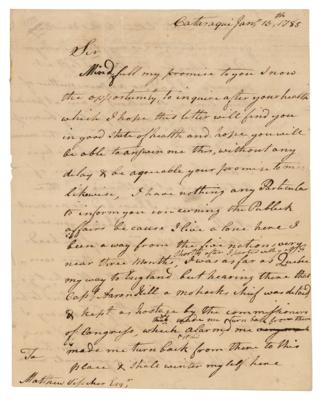 Cataraqui Jany 13th, 1785
Sir
Mindfull my promise to you I now
the opportunity, to inquire after your health
which I hope this letter will find you
in good State of health and hope you will
be able to answer me this, without any
delay & be agreable your promise to me
likewise, I have nothing any Particular
to inform you concerning the Publick
affairs because I live alone here I
been away from the five nations very
near three Months, I was as far as Quebec
my way to England but hearing there that
Capt Aaron Hill a mohawk Chief was detaid
& kept as hostage by the commissioners
of Congress, which alarmd me
made me turn back from there to this
place & shall winter myself here
To
Mathew Visscher Esqr